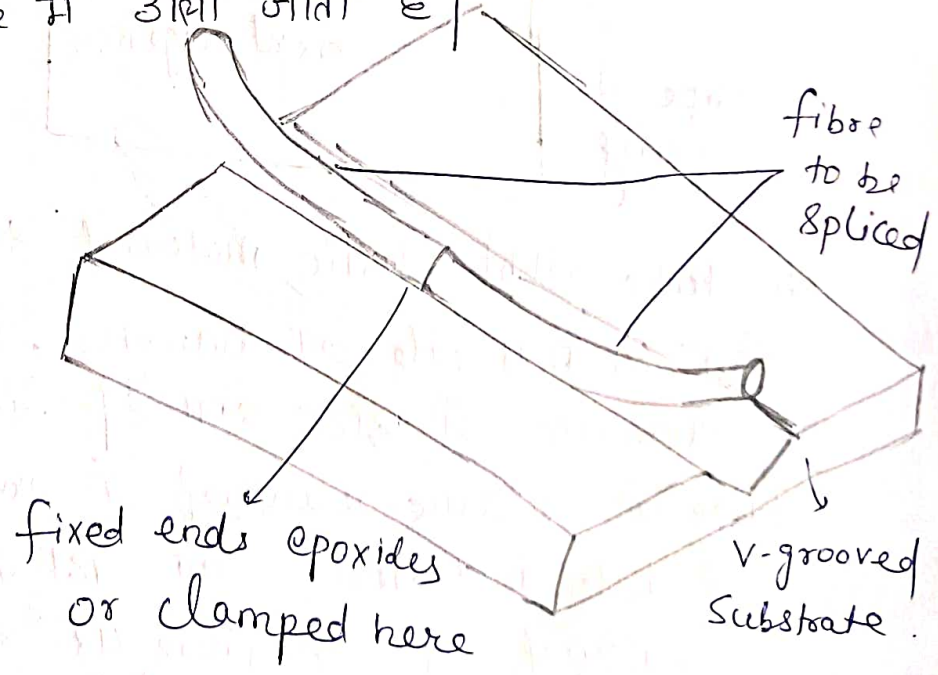 में जाता है |
fibre
to be
spliced
fixed ends epoxides
or clamped here
V-grooved
Substrate.